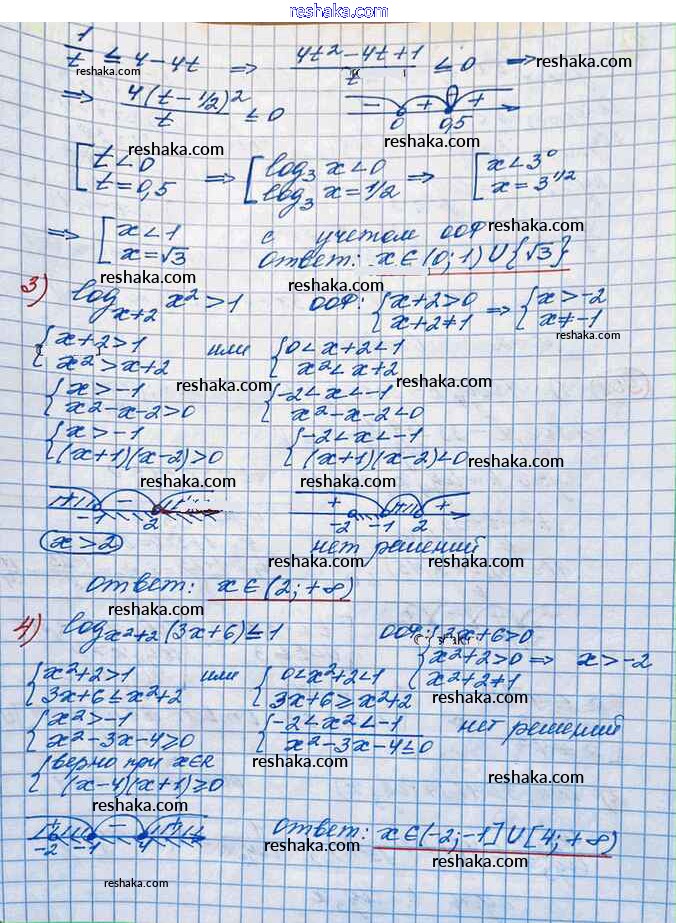 reshaka.com
1/t ≤ 4-4t ⇒ (4t²-4t+1)/t ≤ 0 ⇒
⇒ 4(t-1/2)²/t ≤ 0 - + + 0 0,5
[t<0 t=0,5 ⇒ [log₃x<0 log₃x=1/2 ⇒ [x<3⁰ x=3^1/2
⇒ [x<1 x=√3 с учетом ООФ
Ответ: x∈(0;1)∪{√3}
3) log_{x+2} x²>1 ООФ: {x+2>0 x+2≠1 ⇒ {x>-2 x≠-1
{x+2>1 x²>x+2 или {0<x+2<1 x²<x+2
{x>-1 x²-x-2>0 {-2<x<-1 x²-x-2<0
{x>-1 (x+1)(x-2)>0 {-2<x<-1 (x+1)(x-2)<0
+ - + -1 2 + - + -2 -1 2
x>2 нет решений
Ответ: x∈(2;+∞)
4) log_{x²+2}(3x+6)≤1 ООФ: {3x+6>0 x²+2>0 x²+2≠1 ⇒ x>-2
{x²+2>1 3x+6≤x²+2 или {0<x²+2<1 3x+6≥x²+2
{x²>-1 x²-3x-4≥0 {-2<x²<-1 x²-3x-4≤0 нет решений
{верно при x∈R (x-4)(x+1)≥0
+ - + -2 -1 4
Ответ: x∈(-2;-1]∪[4;+∞)
reshaka.com